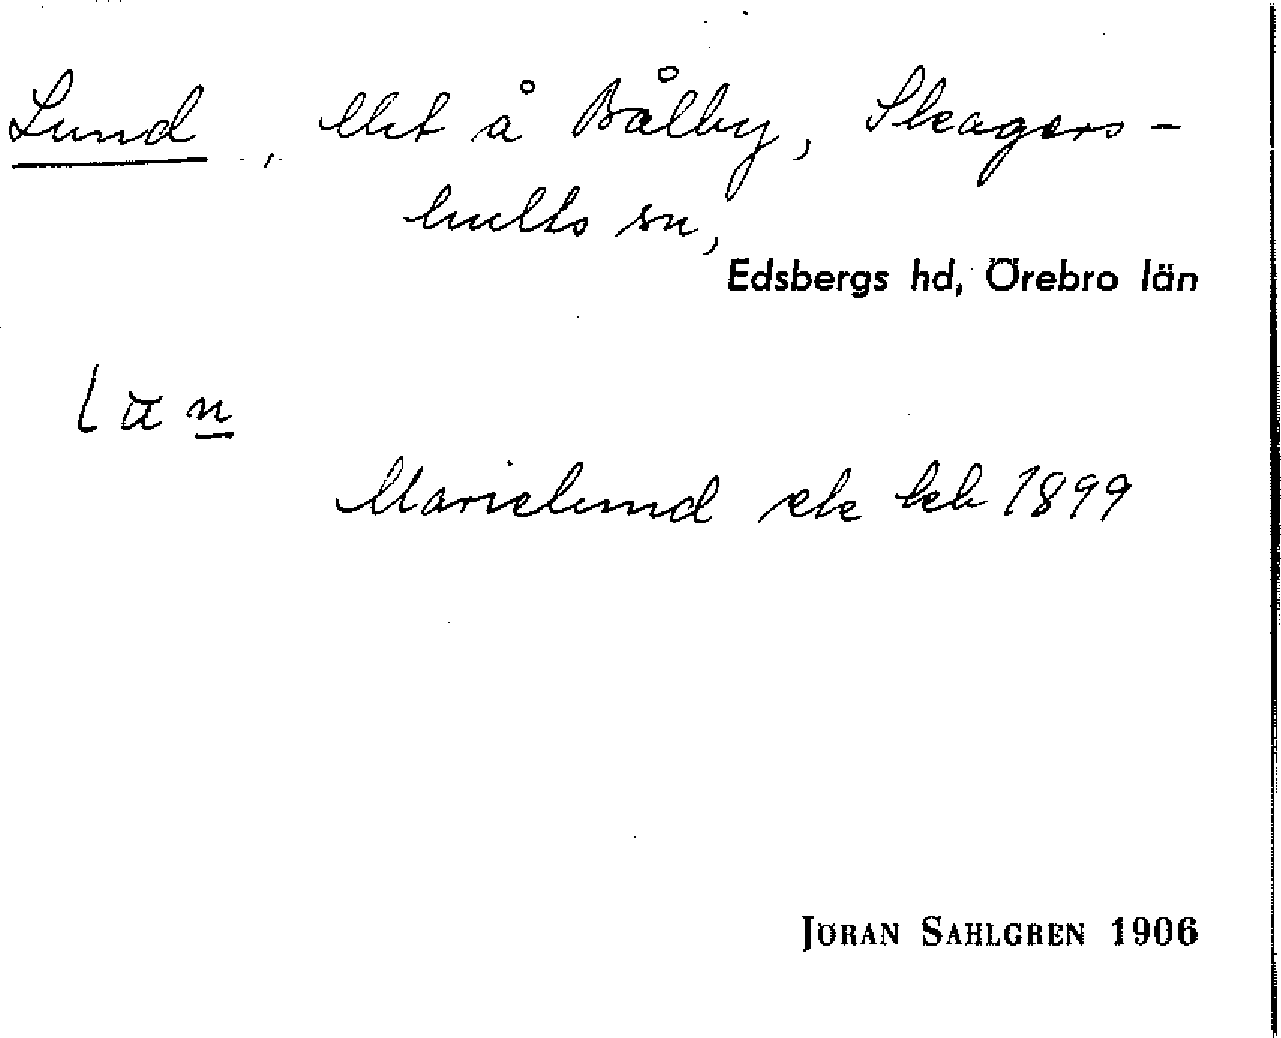 Lund, llet å Bålby, Skagers-
hults sn,
Edsbergs hd, Örebro län
Marielund ek kb 1899
JÖRAN SAHLGREN 1906